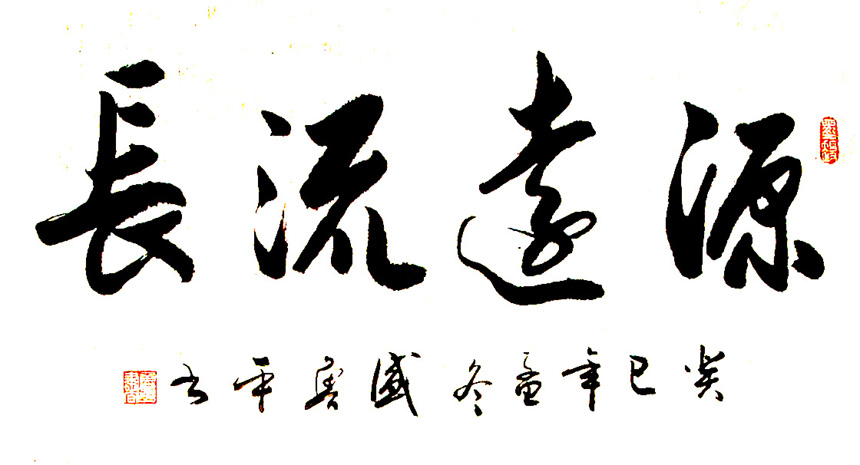 源遠流長
癸巳年孟冬盛春平书